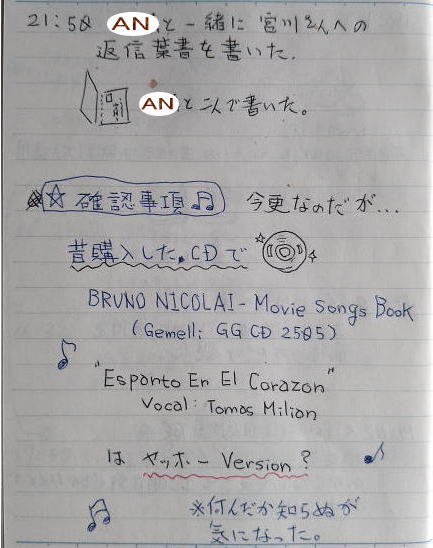 21:58 ANと一緒に宮川さんへの
返信葉書を書いた.
ANと二人で書いた。
☆確認事項♫ 今更なのだが...
昔購入した.CDで
BRUNO NICOLAI- Movie Songs Book
(Gemelli GG CD 2505)
"Espanto En El Corazon"
Vocal: Tomas Milian
は ヤッホー Version?
※何んだか知らぬが
気になった。